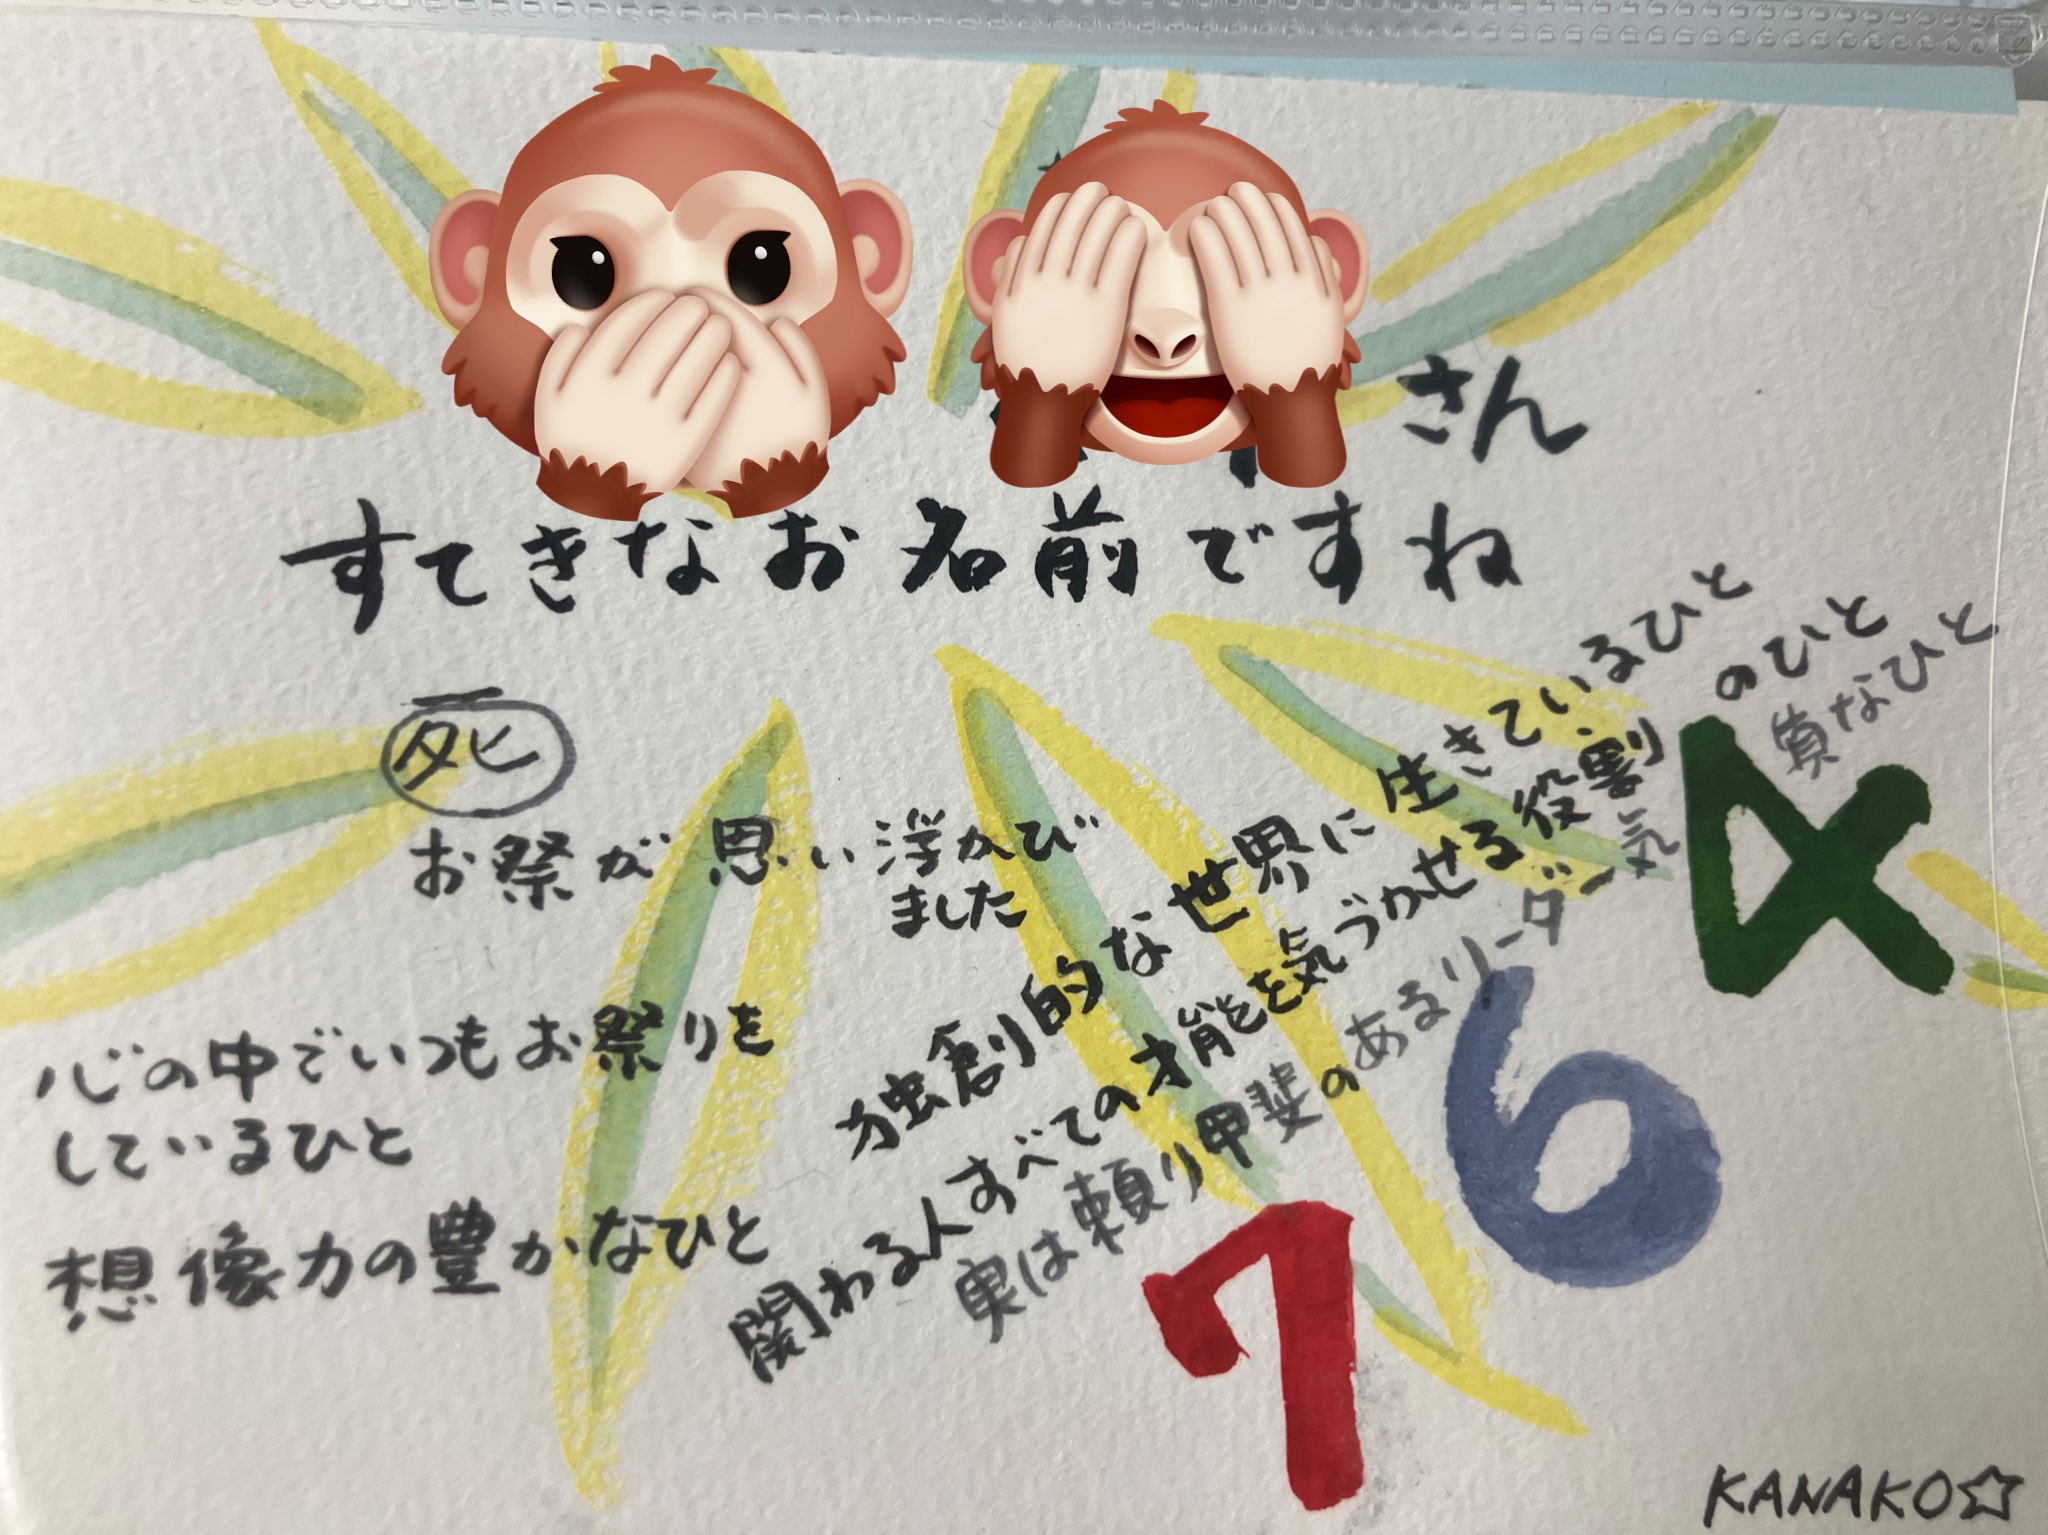 さん
すてきなお名前ですね
死
お祭が思い浮かび
ました
心の中でいつもお祭りを
しているひと
想像力の豊かなひと
独創的な世界に生きているひと
関わる人すべての才能を気づかせる役割のひと
実は頼り甲斐のあるリーダー気質なひと
4
6
7
KANAKO☆